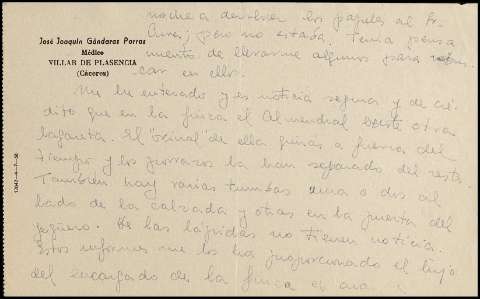 noche a devolver los papeles al Sr.
Cura; pero no estaba. Tenía pensa
miento de llevarme algunos para
car en ellos.
José Joaquín Gándaras Porras
Médico
VILLAR DE PLASENCIA
(Cáceres)
Me he enterado y es noticia segura y de cré
dito que en la finca el Almendral existe otra
lagareta. El "orinal" de ella quizás a fuerza del
tiempo y los porrazos la han separado del resto.
También hay varias tumbas una o dos al
lado de la calzada y otras en la puerta del
De las lápidas no tienen noticia.
Estos informes me los ha proporcionado el hijo
del encargado de la finca